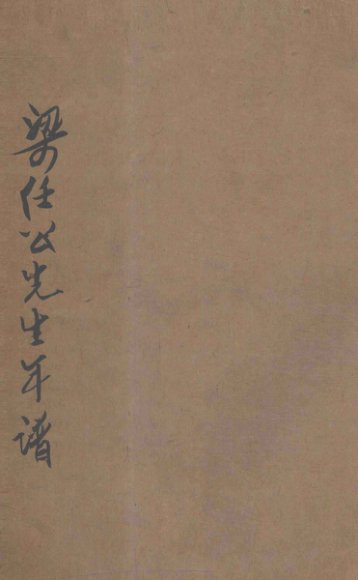 梁任公先生年谱